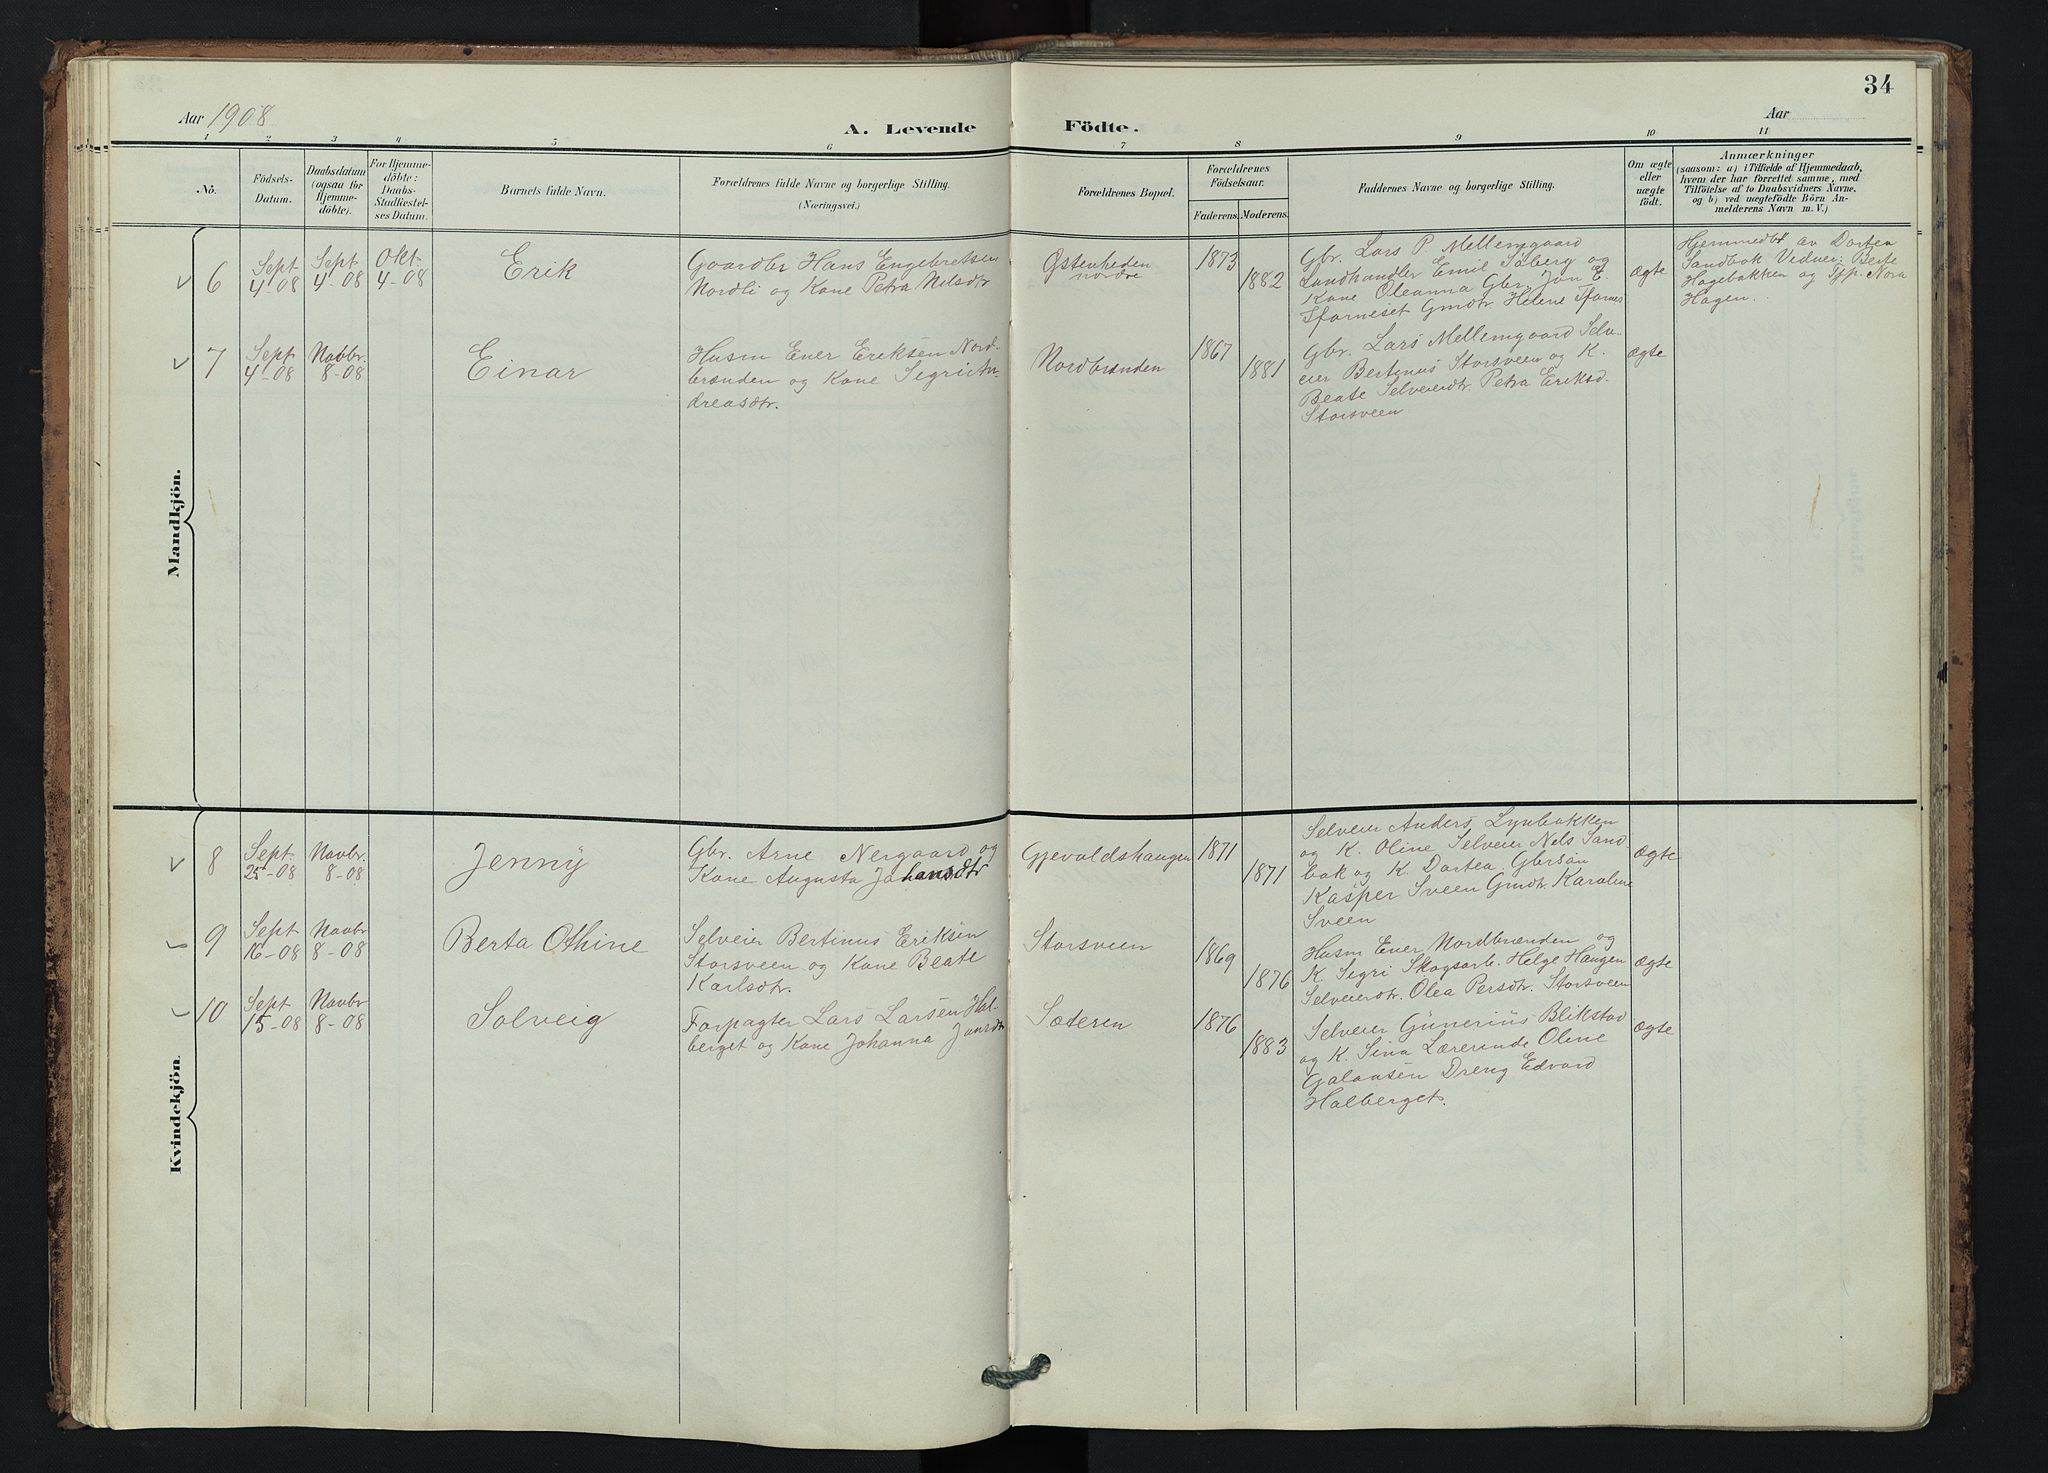 34
Aar 1908
A. Levende
Födte.
Aar
1 2 3 4 5 6 7 8 9 10 11
No.
Födsels-
Datum.
Daabsdatum
(ogsaa for
Hjemme-
döbte).
For Hjemme-
döbte:
Daabs-
Stadfæstel-
ses Datum.
Barnets fulde Navn.
Forældrenes fulde Navne og borgerlige Stilling.
(Næringsvei.)
Forældrenes Bopæl.
Forældrenes
Födselsaar.
Faderens.
Moderens.
Faddernes Navne og borgerlige Stilling.
Om ægte
eller
uægte
födt.
Anmærkninger
(saasom: a) i Tilfælde af Hjemmedaab,
hvem der har forrettet samme, med
Tilföielse af to Daabsvidners Navne,
og b) ved uægtefödte Börn An-
melderens Navn m. V.)
Mandkjön.
6
Sept
4-08
Sept
4-08
Okt-
4-08
Erik
Gaardbr Hans Engebretsen
Nordli og Kone Petra Nilsdtr
Østenheden
nordre
1873
1882
Gbr. Lars P. Mellemgaard
Landhandler Emil Søberg og
Kone Oleanna Gbr. Jon E.
Gmdtr. Helene
ægte
Hjemmedøbt av Dortea
Sandbok Vidner: Berte
Hagebakken og Nora
Hagen.
7
Sept
4-08
Novbr.
8-08
Einar
Husm Ener Eriksen Nord-
brænden og Kone Segri An-
dreasdtr.
Nordbrænden
1867
1881
Gbr. Lars Mellemgaard Selv-
eier Bertinus Storsveen og K.
Beate Selveierdtr. Petra Eriksd.
Storsveen
ægte
Kvindekjön.
8
Sept-
25-08
Novbr.
8-08
Jenny
Gbr. Arne Nergaard og
Kone Augusta Johansdtr
Gjevaldshaugen
1871
1871
Selveier Anders Lynbakken
og K. Oline Selveier Nels Sand-
bak og K. Dortea Gbrsøn
Kasper Sveen Gmdtr. Karoline
Sveen
ægte
9
Sept
16-08
Novbr
8-08
Berta Othine
Selveier Bertinus Eriksen
Storsveen og Kone Beate
Karlsdtr.
Storsveen
1869
1876
Husm Ener Nordbrænden og
K. Segri Skogsarb. Helge Haugen
Selveierdtr. Olea Persdtr. Storsveen
ægte
10
Sept
15-08
Novbr
8-08
Solveig
Forpagter Lars Larsen Hal-
berget og Kone Johanna Jonsdtr
Sæteren
1876
1883
Selveier Gunerius Blikstad
og K. Sina Lærerinde Oline
Galaasen Dreng Edvard
Halberget.
ægte